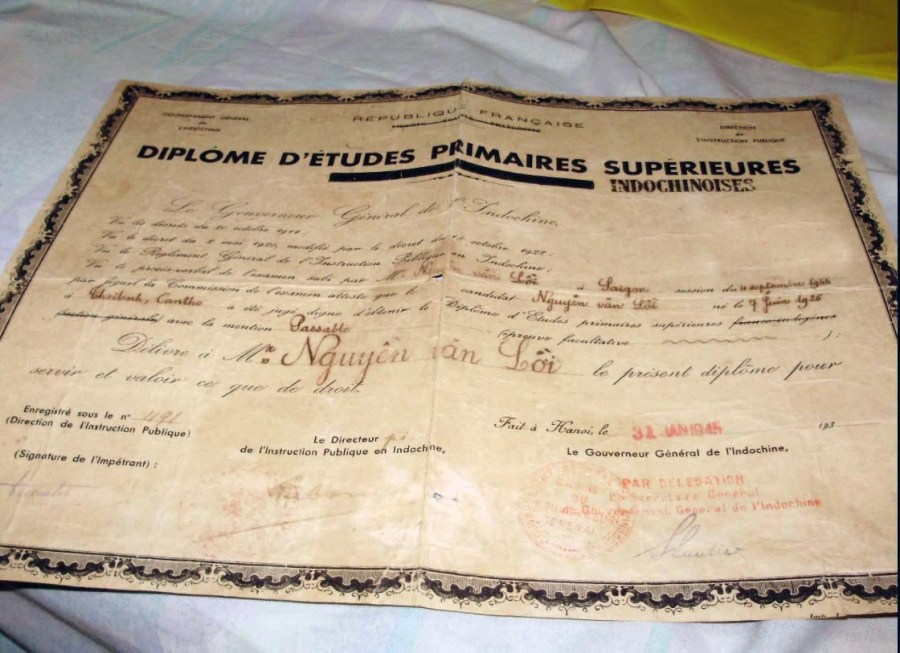 GOUVERNEMENT GÉNÉRAL
de
L'INDOCHINE
RÉPUBLIQUE FRANÇAISE
DIRECTION
de
L'INSTRUCTION PUBLIQUE
DIPLÔME D'ÉTUDES PRIMAIRES SUPÉRIEURES
INDOCHINOISES
Le Gouverneur Général de l'Indochine,
Vu les décrets du 20 octobre 1911;
Vu le décret du 2 mai 1920, modifié par le décret du octobre 1922;
Vu le Règlement Général de l'Instruction Publique en Indochine;
Vu le procès-verbal de l'examen subi par M. Nguyễn văn Lỗi à Saigon session du 11 septembre
par lequel la Commission de l'examen atteste que le candidat Nguyễn văn Lỗi né le 7 Juin 1926
à Cantho a été jugé digne d'obtenir le Diplôme d'Études primaires supérieures franco-indigènes
(section générale) avec la mention Passable (épreuve facultative ) :
Délivre à M. Nguyễn văn Lỗi le présent diplôme pour
servir et valoir ce que de droit.
Enregistré sous le n° 491
(Direction de l'Instruction Publique)
(Signature de l'Impétrant) :
Le Directeur
de l'Instruction Publique en Indochine,
Fait à Hanoi, le 31 JAN 1945 193
Le Gouverneur Général de l'Indochine,
PAR DÉLÉGATION
Le Secrétaire Général
du Gouvernement Général de l'Indochine